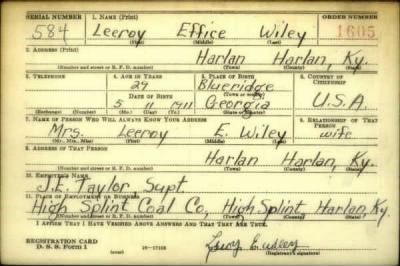 SERIAL NUMBER 1. NAME (Print) ORDER NUMBER
584 Leeroy Effice Wiley 1605
(First) (Middle) (Last)
2. ADDRESS (Print)
Harlan Harlan, Ky.
(Number and street or R. F. D. number) (Town) (County) (State)
3. TELEPHONE 4. AGE IN YEARS 5. PLACE OF BIRTH 6. COUNTRY OF CITIZENSHIP
29 Blueridge
DATE OF BIRTH (Town or county)
5 11 1911 Georgia U.S.A.
(Exchange) (Number) (Mo.) (Day) (Yr.) (State or country)
7. NAME OF PERSON WHO WILL ALWAYS KNOW YOUR ADDRESS 8. RELATIONSHIP OF THAT PERSON
Mrs. Leeroy E. Wiley wife
(Mr., Mrs., Miss) (First) (Middle) (Last)
9. ADDRESS OF THAT PERSON
Harlan Harlan, Ky.
(Number and street or R. F. D. number) (Town) (County) (State)
10. EMPLOYER'S NAME
J.E. Taylor Supt.
11. PLACE OF EMPLOYMENT OR BUSINESS
High Splint Coal Co, High Splint Harlan, Ky.
(Number and street or R. F. D. number) (Town) (County) (State)
I AFFIRM THAT I HAVE VERIFIED ABOVE ANSWERS AND THAT THEY ARE TRUE.
REGISTRATION CARD
D. S. S. Form 1 (over) (Registrant's signature)